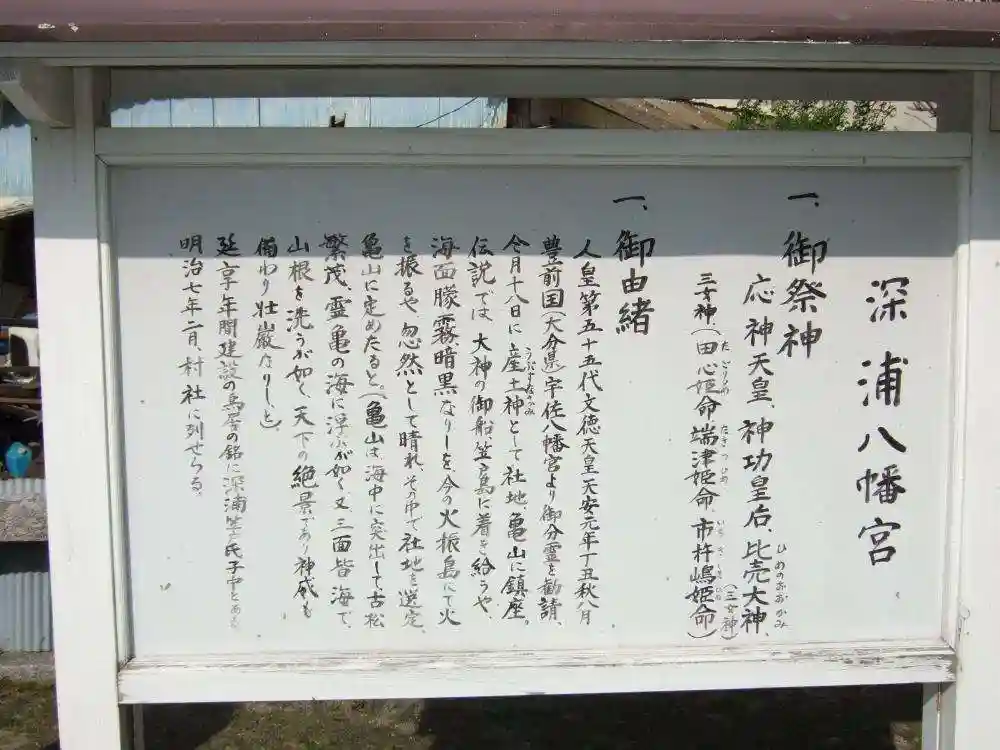 深浦八幡宮
一、御祭神
応神天皇、神功皇后、比売大神、
ひめのおおかみ
(三女神)
三女神、(田心姫命、端津姫命、市杵嶋姫命)
たごりひめ たぎつひめ いちきしまひめ
一、御由緒
人皇第五十五代文徳天皇天安元年丁丑秋八月
豊前国(大分県)宇佐八幡宮より御分霊を勧請、
今月十八日に産土神として社地、亀山に鎮座。
うぶすながみ
伝説では、大神の御船、笠戸島に着き給うや、
海面朦霧暗黒なりしを、今の火振島にて火
を振るや忽然として晴れ、その中で社地を選定、
亀山に定めたると。(亀山は、海中に突出して、古松
繁茂、霊亀の海に浮ぶが如く、又、三面皆海で、
山根を洗うが如く、天下の絶景であり神威も
備わり壮厳なりし、と)
延享年間建設の鳥居の銘に深浦笠戸氏子中とあるも
明治七年二月、村社に列せらる。